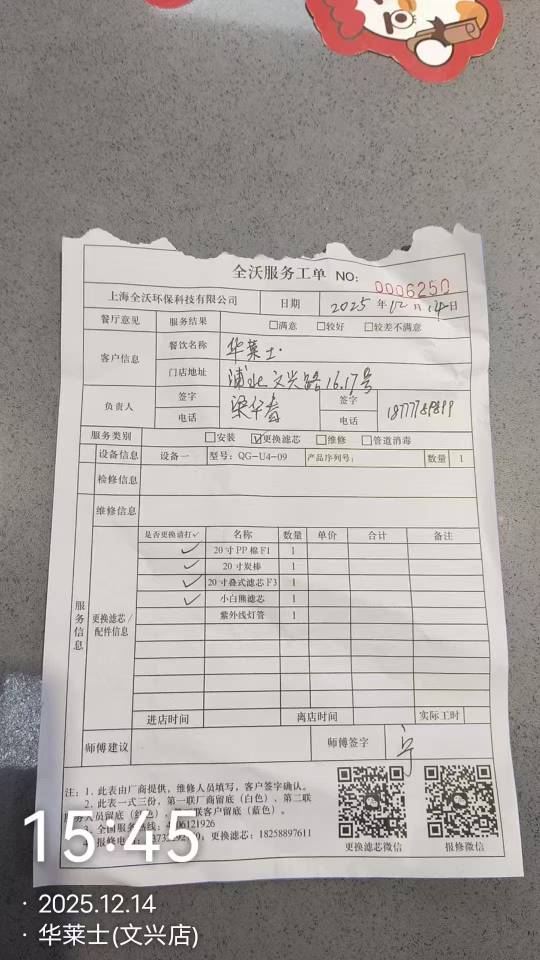 全沃服务工单 NO: 0006250
上海全沃环保科技有限公司 日期 2025年12月14日
餐厅意见 服务结果 □满意 □较好 □较差不满意
客户信息 餐饮名称 华莱士.
门店地址 浦北文兴路16.17号
负责人 签字 签字
电话 电话
服务类别 □安装 ☑更换滤芯 □维修 □管道消毒
设备信息 设备一 型号: QG-U4-09 产品序列号: 数量 1
检修信息
维修信息
服务信息 更换滤芯/配件信息
是否更换请打✓ 名称 数量 单价 合计 备注
✓ 20寸PP棉F1 1
✓ 20寸炭棒 1
✓ 20寸叠式滤芯F3 1
✓ 小白熊滤芯 1
紫外线灯管 1
进店时间 离店时间 实际工时
师傅建议 师傅签字
注: 1. 此表由厂商提供, 维修人员填写, 客户签字确认。
2. 此表一式三份, 第一联厂商留底 (白色)、第二联
服务人员留底 联客户留底 (蓝色)。
3. 全国服务热线: 6121926
4. 报修电 更换滤芯: 18258897611
更换滤芯微信 报修微信
15:45
· 2025.12.14
· 华莱士(文兴店)